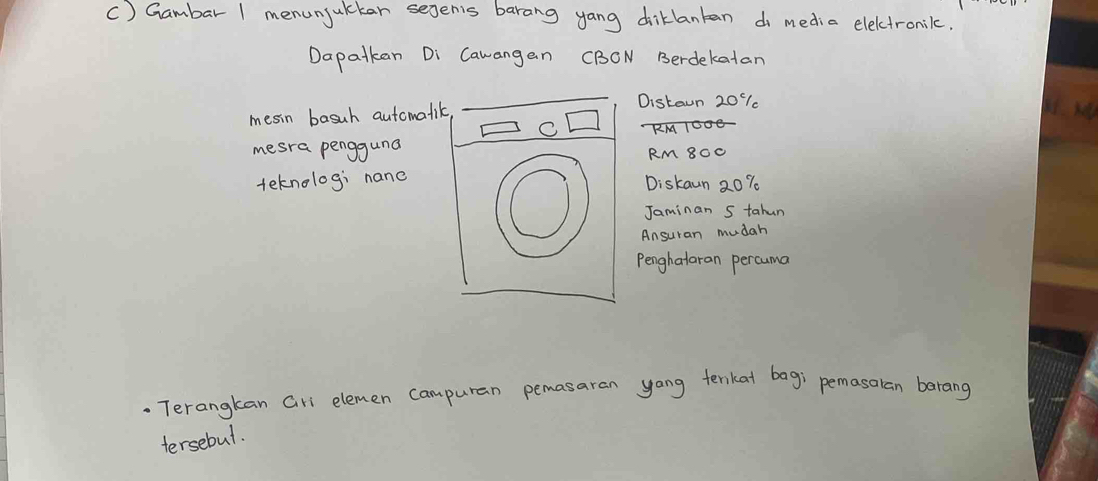 c) Gambar 1 menunjukkan sejenis barang yang diiklankan di media elektronik.
Dapatkan Di Cawangan CBON Berdekatan
mesin basuh automatik,
mesra pengguna
teknologi nano
C
Diskaun 20%
RM 1000
RM 800
Diskaun 20%
Jaminan 5 tahun
Ansuran mudah
Penghataran percuma
• Terangkan ciri elemen campuran pemasaran yang terikat bagi pemasaran barang
tersebut.